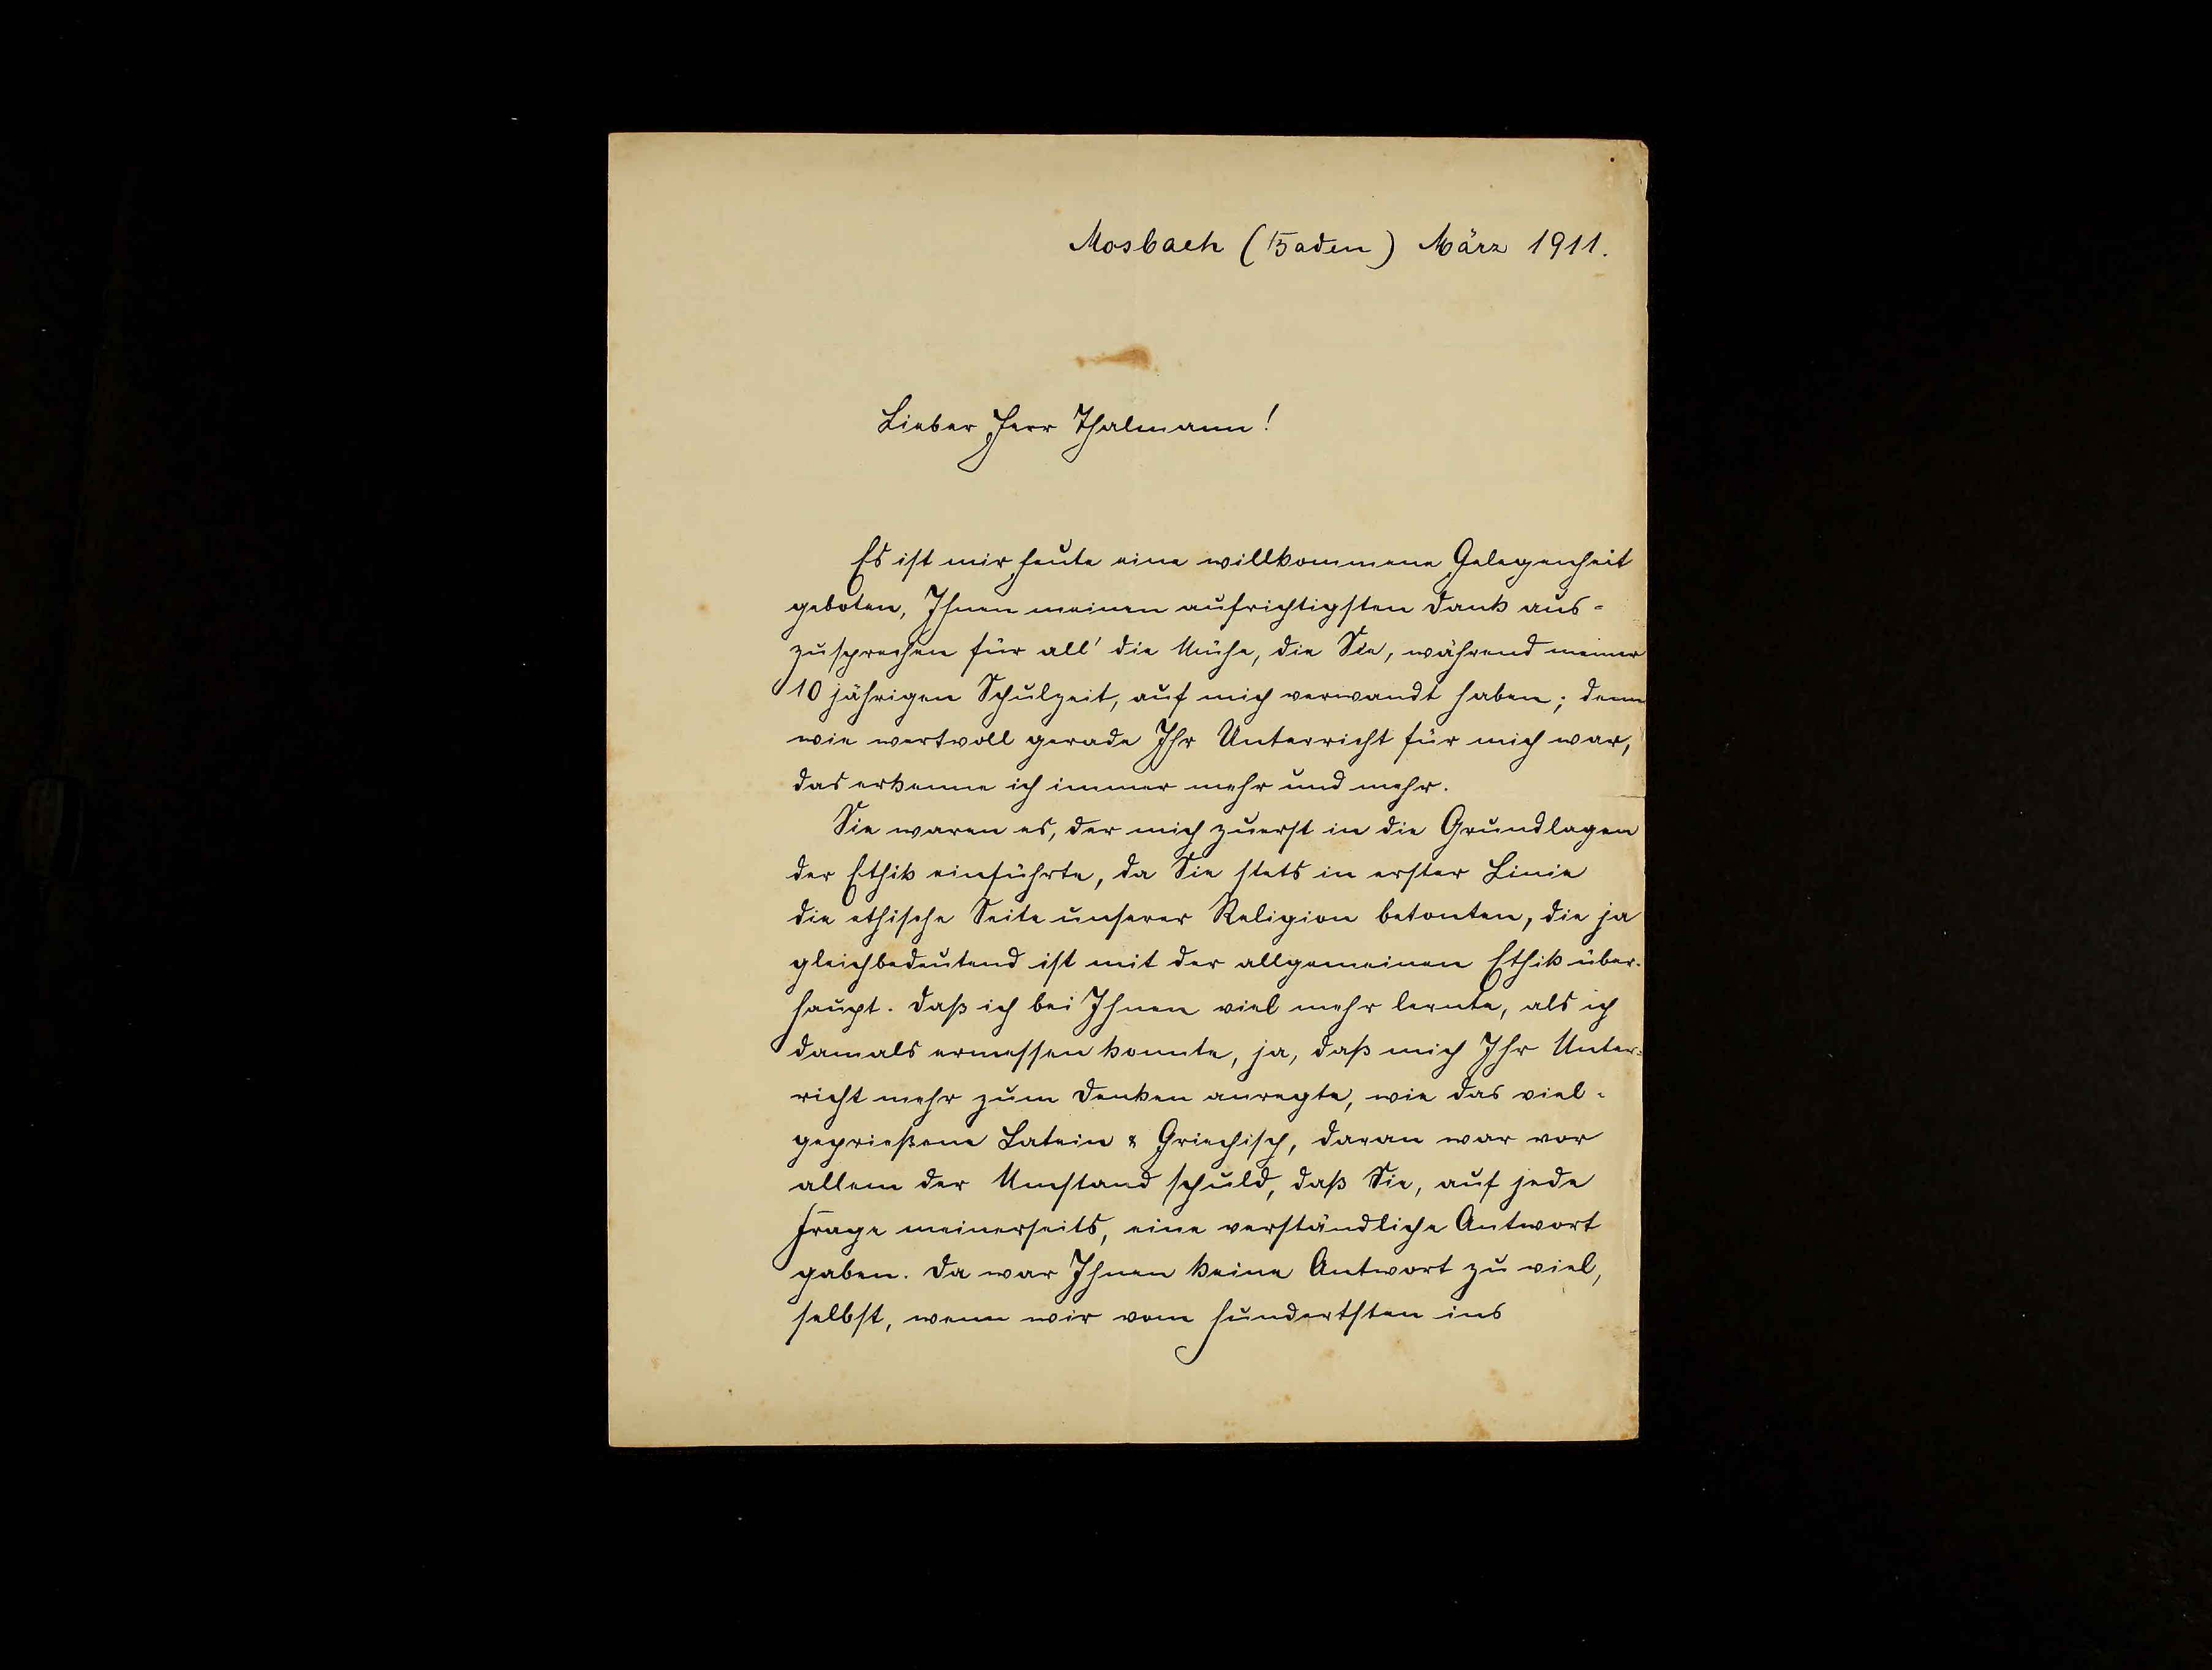 Mosbach (Baden) März 1911.
Lieber Herr Thalmann!
Es ist mir heute eine willkommene Gelegenheit
geboten, Ihnen meinen aufrichtigsten Dank aus-
zusprechen für all' die Mühe, die Sie, während meiner
10 jährigen Schulzeit, auf mich verwandt haben; denn
wie wertvoll gerade Ihr Unterricht für mich war,
das erkenne ich immer mehr und mehr.
Sie waren es, der mich zuerst in die Grundlagen
der Ethik einführte, da Sie stets in erster Linie
die ethische Seite unserer Religion betonten, die ja
gleichbedeutend ist mit der allgemeinen Ethik über-
haupt. Daß ich bei Ihnen viel mehr lernte, als ich
damals ermessen konnte, ja, daß mich Ihr Unter-
richt mehr zum Denken anregte, wie das viel-
geprießene Latein & Griechisch, daran war vor
allem der Umstand schuld, daß Sie, auf jede
Frage meinerseits, eine verständliche Antwort
gaben. Da war Ihnen keine Antwort zu viel,
selbst, wenn wir vom hundertsten ins